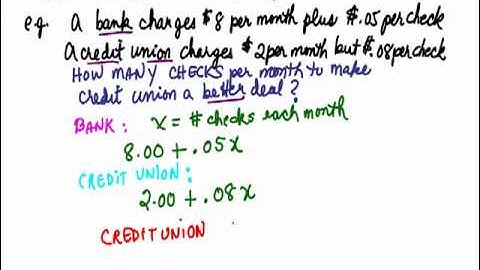 e.g. A bank charges $8 per month plus $.05 per check
A credit union charges $2 per month but $.08 per check
HOW MANY CHECKS per month to make
credit union a better deal?
BANK: x = # checks each month
8.00 + .05x
CREDIT UNION:
2.00 + .08x
CREDIT UNION